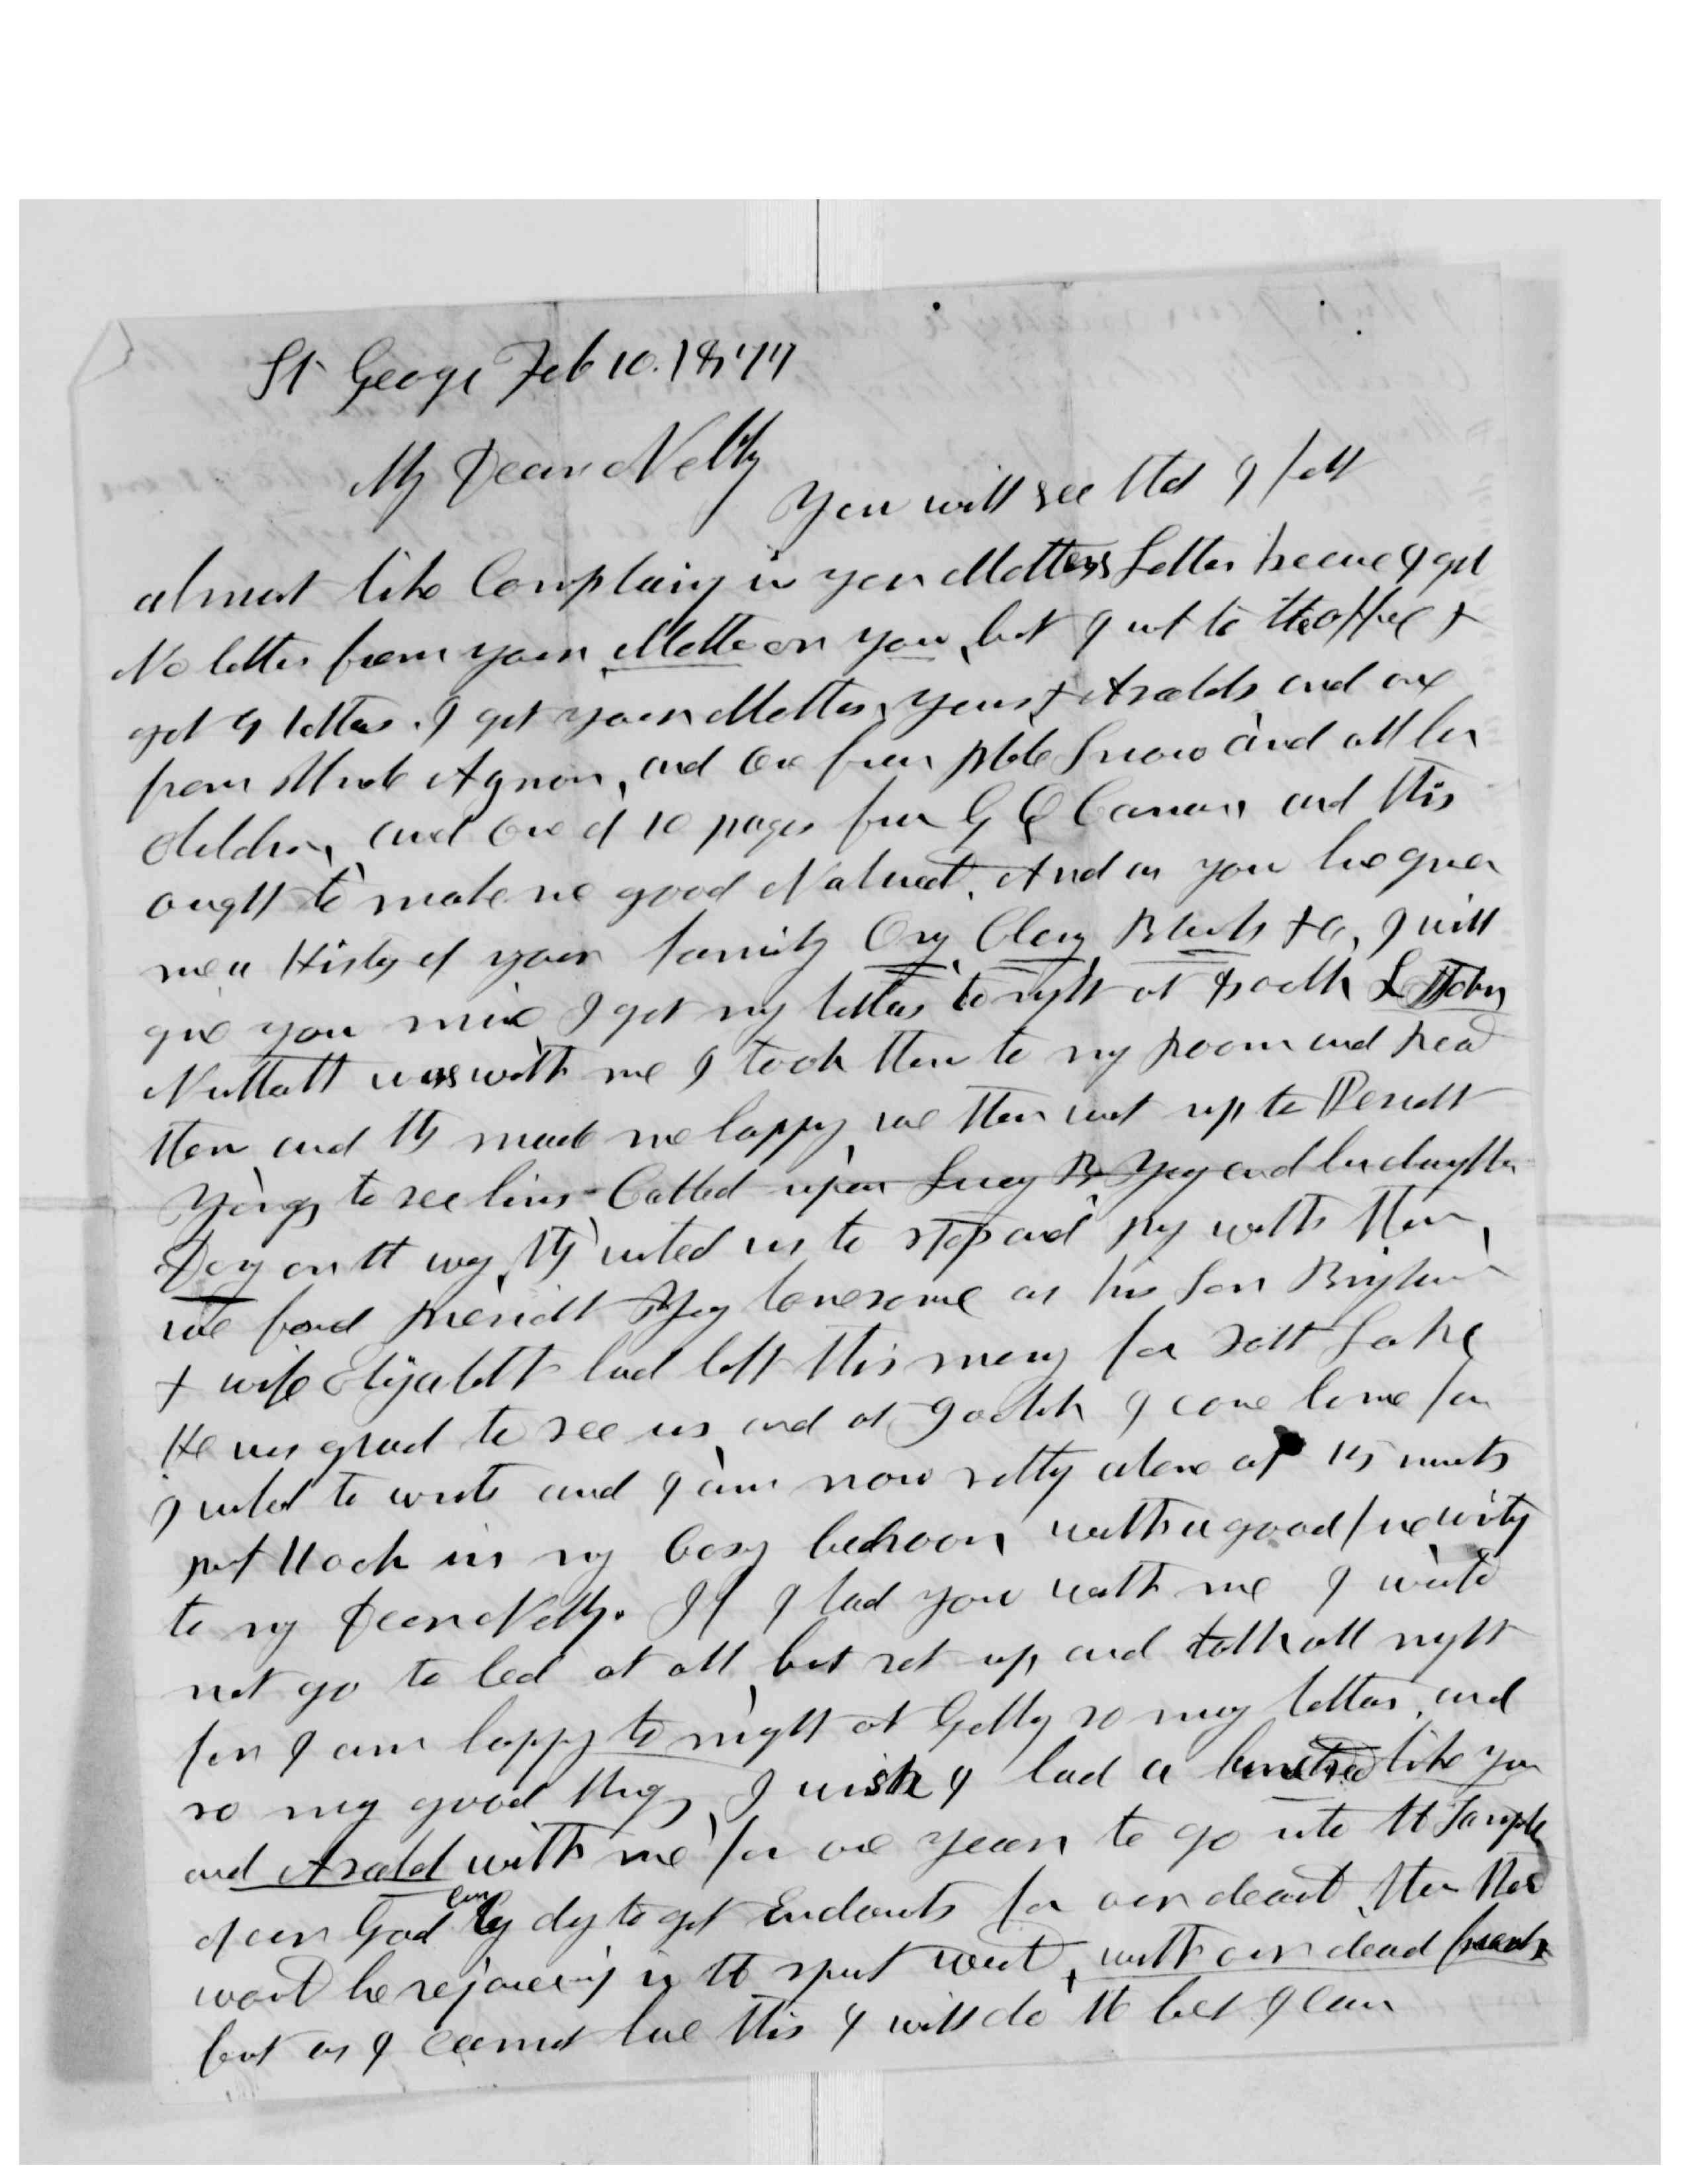 St George Feb 10. 1877
My Dear Nelly
You will see that I felt
almost like Complaing in your Mothers Letter because I got
No letter from your Mother or you, but I wet to the office &
got 9 letters. I got your Mothers, yours & Asahels and one
from Uncle Azmon, and one from Phebe Snow and all her
Children, and one of 10 pages from G Q Cannon, and this
ought to make me good Natured. And as you have given
me a History of your family Ovy, Clary, Blanch &c, I will
give you mine I got my letters to night at 8 oclk L John
Nuttall was with me I took them to my Room and Read
them and they made me happy, we then wet up to Presidt
Yongs to see him - Called upon Lucy B Yog and her daughter
Dory on the way, they invited us to stop and py with them,
we found Presidt Yog lonesome as his Son Brigham
& wife Elizabeth had left this morng for Salt Lake
He was glad to see us, and at 9 oclok I came home for
I wated to write and I am now sitting alone at 15 minuts
past 11 och in my Cosy bedroom with a good fire writing
to my Dear Nelly. If I had you with me I would
not go to bed at all, but set up and talk all night
for I am happy to night at Getting so many letters, and
so many good things, I wish I had a hundred like you
and Asahel with me for one year to go into the Temple
of our God evry day to get Endowmts for our dead, then thare
would be rejoiceing in the spirit world, with our dead friends
but as I cannot have this I will do the best I can